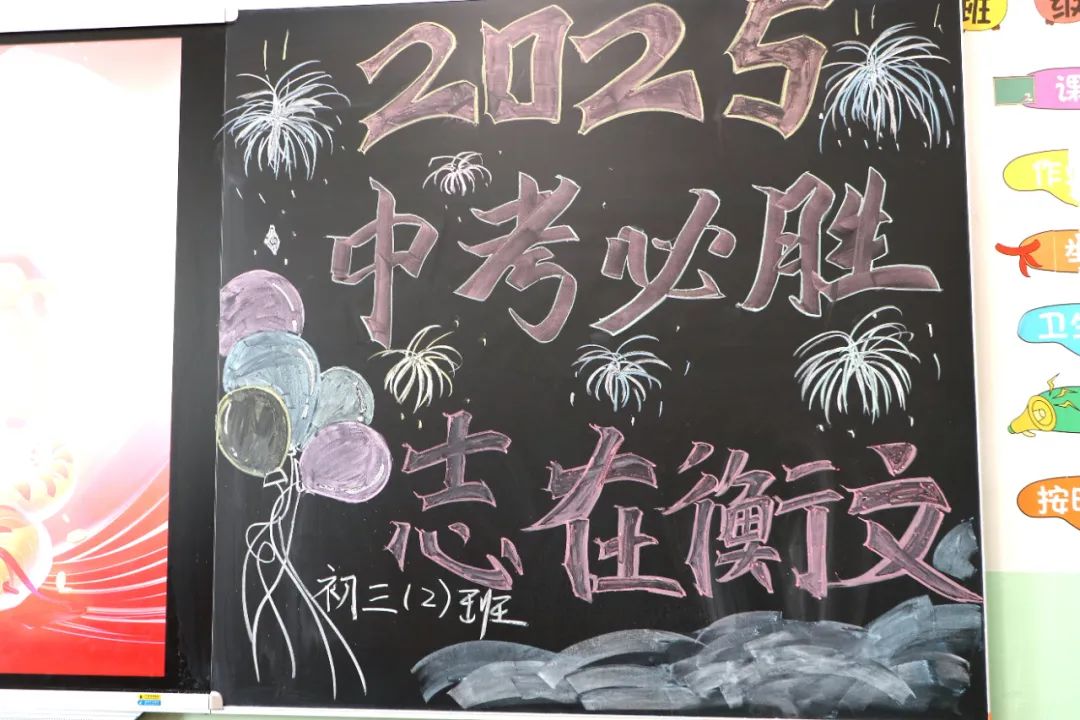 2025
中考必胜
志在衡文
初三(2)班
班
级
课
作
卫生
按时